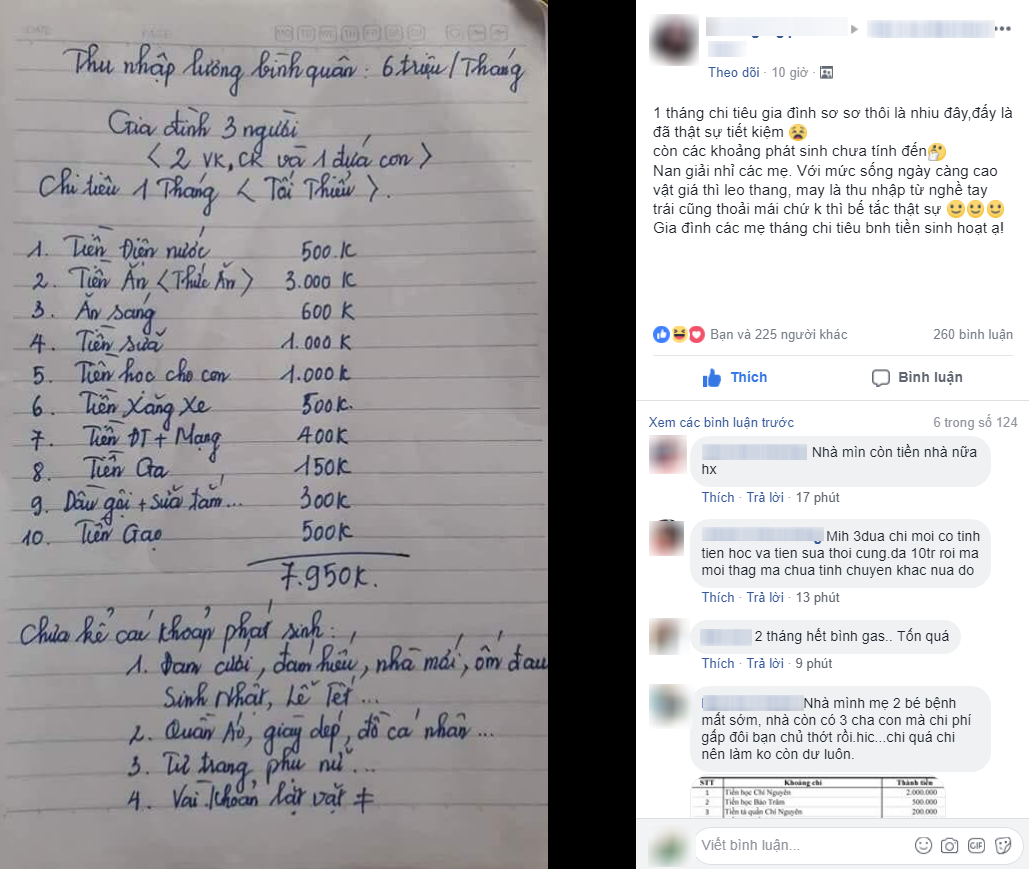 Thu nhập lương bình quân: 6 triệu/Tháng
Gia đình 3 người
< 2 VK, CK và 1 đứa con >
Chi tiêu 1 Tháng < Tối Thiểu >.
1. Tiền Điện nước 500.K
2. Tiền Ăn <Thức Ăn> 3.000 K
3. Ăn sáng 600 K
4. Tiền sữa 1.000 K
5. Tiền học cho con 1.000 K
6. Tiền Xăng Xe 500K.
7. Tiền ĐT + Mạng 400K
8. Tiền Ga 150K
9. Dầu gội + sữa tắm... 300K
10. Tiền Gạo 500K
7.950K.
Chưa kể các khoản phát sinh:
1. Đám cưới, đám hiếu, nhà mới, ốm đau
Sinh Nhật, Lễ Tết...
2. Quần Áo, giày dép, đồ cá nhân...
3. Tư trang phụ nữ...
4. Vài khoản lặt vặt ≠
Theo dõi · 10 giờ ·
1 tháng chi tiêu gia đình sơ sơ thôi là nhiu đây,đấy là
đã thật sự tiết kiệm 😫
còn các khoảng phát sinh chưa tính đến🤔
Nan giải nhỉ các mẹ. Với mức sống ngày càng cao
vật giá thì leo thang, may là thu nhập từ nghề tay
trái cũng thoải mái chứ k thì bế tắc thật sự 🙂🙂🙂
Gia đình các mẹ tháng chi tiêu bnh tiền sinh hoạt ạ!
Bạn và 225 người khác 260 bình luận
Thích Bình luận
Xem các bình luận trước 6 trong số 124
Nhà mìn còn tiền nhà nữa
hx
Thích · Trả lời · 17 phút
Mih 3dua chi moi co tinh
tien hoc va tien sua thoi cung.da 10tr roi ma
moi thag ma chua tinh chuyen khac nua do
Thích · Trả lời · 13 phút
2 tháng hết bình gas.. Tốn quá
Thích · Trả lời · 9 phút
Nhà mình mẹ 2 bé bệnh
mất sớm, nhà còn có 3 cha con mà chi phí
gấp đôi bạn chủ thớt rồi.hic...chi quá chi
nên làm ko còn dư luôn.
STT Khoảng chi Thành tiền
1 Tiền học Chí Nguyên 2.000.000
2 Tiền học Bảo Trâm 500.000
3 Tiền tả quần Chí Nguyên 200.000
Viết bình luận...
GIF